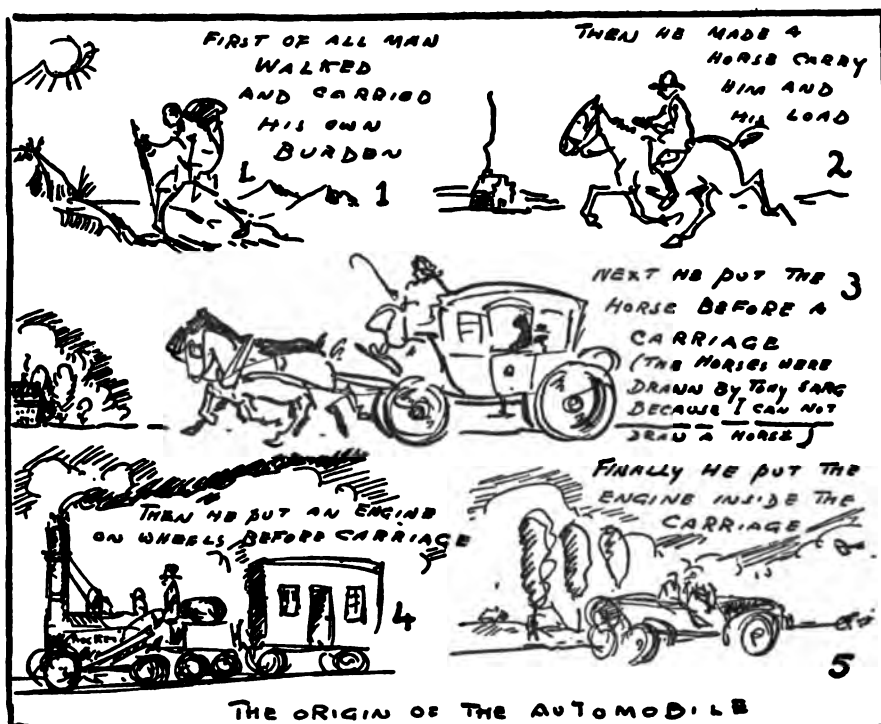 FIRST OF ALL MAN
WALKED
AND CARRIED
HIS OWN
BURDEN
1
THEN HE MADE A
HORSE CARRY
HIM AND
HIS LOAD
2
NEXT HE PUT THE
HORSE BEFORE A
CARRIAGE
(THE HORSES HERE
DRAWN BY TONY SARG
BECAUSE I CAN NOT
DRAW A HORSE)
3
THEN HE PUT AN ENGINE
ON WHEELS BEFORE CARRIAGE
4
FINALLY HE PUT THE
ENGINE INSIDE THE
CARRIAGE
5
THE ORIGIN OF THE AUTOMOBILE